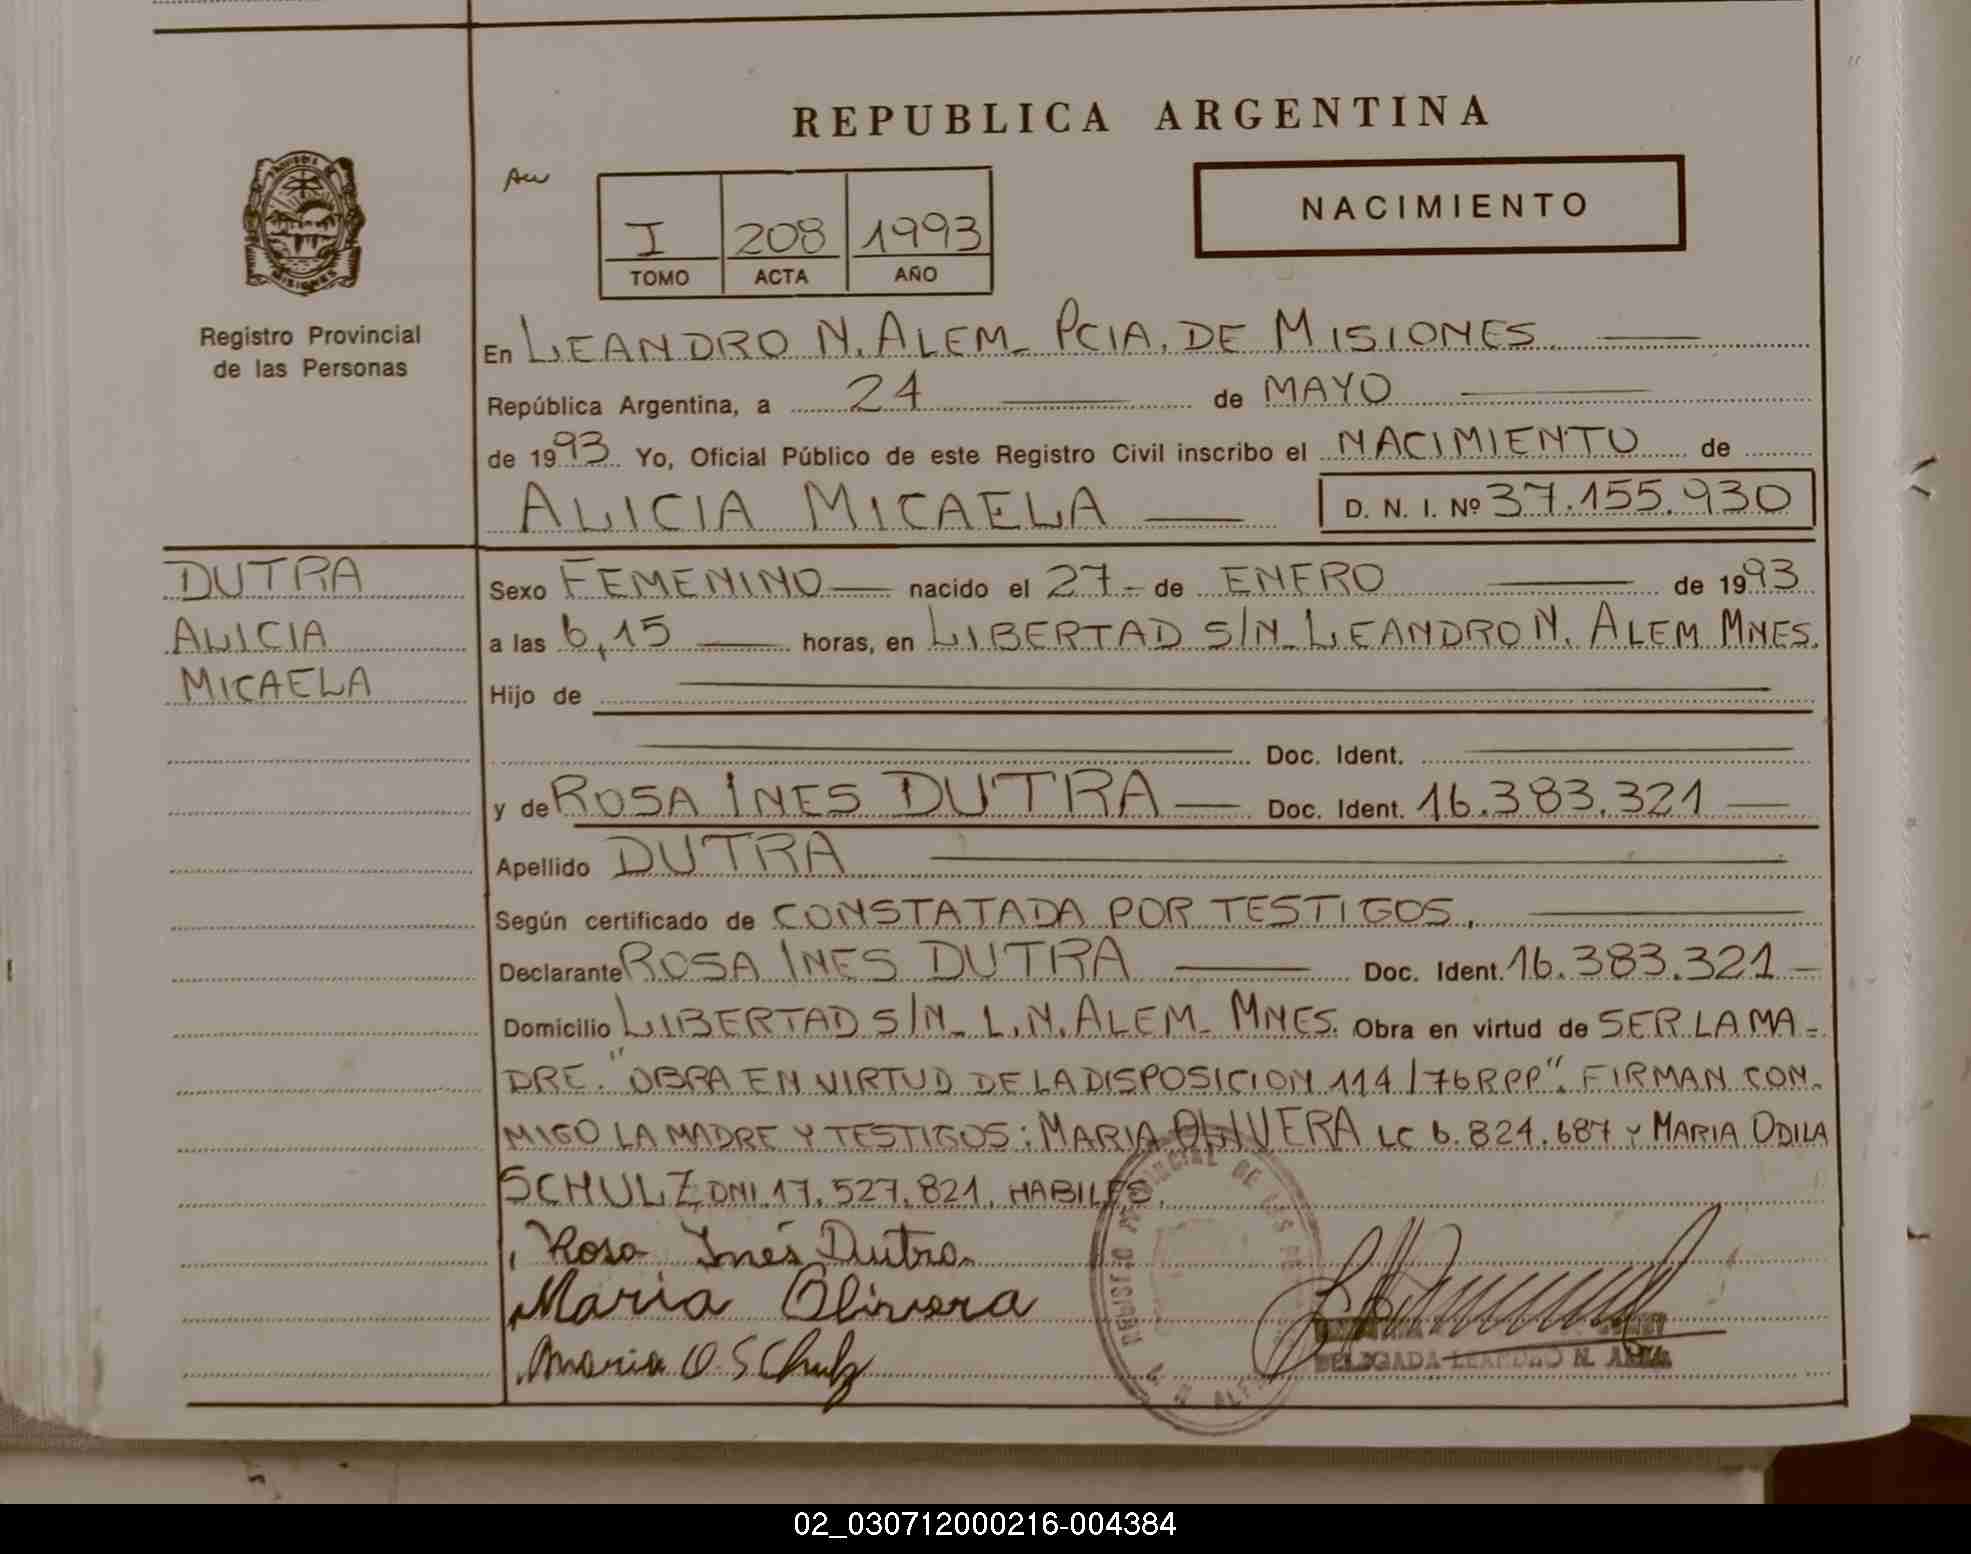 REPUBLICA ARGENTINA
NACIMIENTO
I 208 1993
TOMO ACTA AÑO
MISIONES
Registro Provincial
de las Personas
En LEANDRO N. ALEM_ PCIA. DE MISIONES
República Argentina, a 24 de MAYO
de 1993 Yo, Oficial Público de este Registro Civil inscribo el NACIMIENTO de
ALICIA MICAELA D. N. I. Nº 37.155.930
DUTRA
ALICIA
MICAELA
Sexo FEMENINO nacido el 27 de ENERO de 1993
a las 6,15 horas, en LIBERTAD S/N_ LEANDRO N. ALEM MNES.
Hijo de
Doc. Ident.
y de ROSA INES DUTRA Doc. Ident. 16.383.321
Apellido DUTRA
Según certificado de CONSTATADA POR TESTIGOS.
Declarante ROSA INES DUTRA Doc. Ident. 16.383.321
Domicilio LIBERTAD S/N_ L.N. ALEM_ MNES. Obra en virtud de SER LA MA-
DRE. "OBRA EN VIRTUD DE LA DISPOSICION 114/76 RPP". FIRMAN CON-
MIGO LA MADRE Y TESTIGOS: MARIA OLIVERA LC 6.824.687 Y MARIA ODILA
SCHULZ DNI. 17.527.821. HABILES.
Rosa Inés Dutra
Maria Olivera
Maria O. SChulz
DELEGADA LEANDRO N. ALEM
02_030712000216-004384